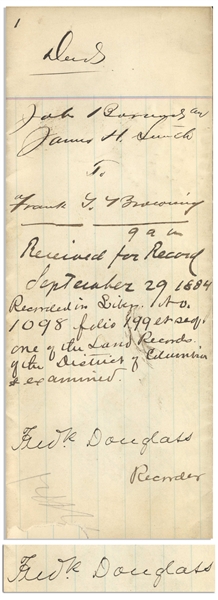 1
Deed
John
James H. Lynch
To
Frank T. Browning
9 a m
Received for Record
September 29 1884
Recorded in Liber No.
1098 folio 199 et seq.
one of the Land Records
of the District of Columbia
& examined.
Fredk Douglass
Recorder
Fredk Douglass